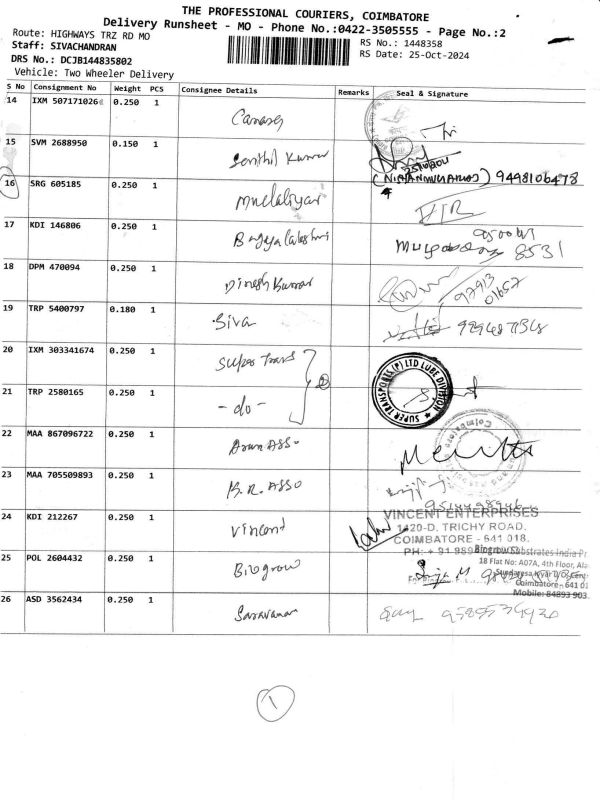 THE PROFESSIONAL COURIERS, COIMBATORE
Delivery Runsheet - MO - Phone No.:0422-3505555 - Page No.:2
Route: HIGHWAYS TRZ RD MO
Staff: SIVACHANDRAN
DRS No.: DCJB144835802
Vehicle: Two Wheeler Delivery
RS No.: 1448358
RS Date: 25-Oct-2024
S No Consignment No Weight PCS Consignee Details Remarks Seal & Signature
14 IXM 507171026 0.250 1
15 SVM 2688950 0.150 1 Senthil Kumar
25/10/2024
16 SRG 605185 0.250 1 Mudaliyar 9498106478
17 KDI 146806 0.250 1 Bagyalakshmi
8531
18 DPM 470094 0.250 1 Dinesh Kumar 97913
01657
19 TRP 5400797 0.180 1 Siva
20 IXM 303341674 0.250 1 Super Trans
SUPER TRANSPORTS (P) LTD LUBE DIVISION
21 TRP 2580165 0.250 1 - do -
22 MAA 867096722 0.250 1 Arun Asso
Coimbatore
23 MAA 705509893 0.250 1 B.R. Asso
24 KDI 212267 0.250 1 Vincent
VINCENT ENTERPRISES
1420-D, TRICHY ROAD,
COIMBATORE - 641 018.
PH: + 91 989
25 POL 2604432 0.250 1 Biogrow
Substrates India Pr
18 Flat No: A07A, 4th Floor, Ala
Coimbatore - 641 01
Mobile: 84893 903
26 ASD 3562434 0.250 1 Saravanan
1